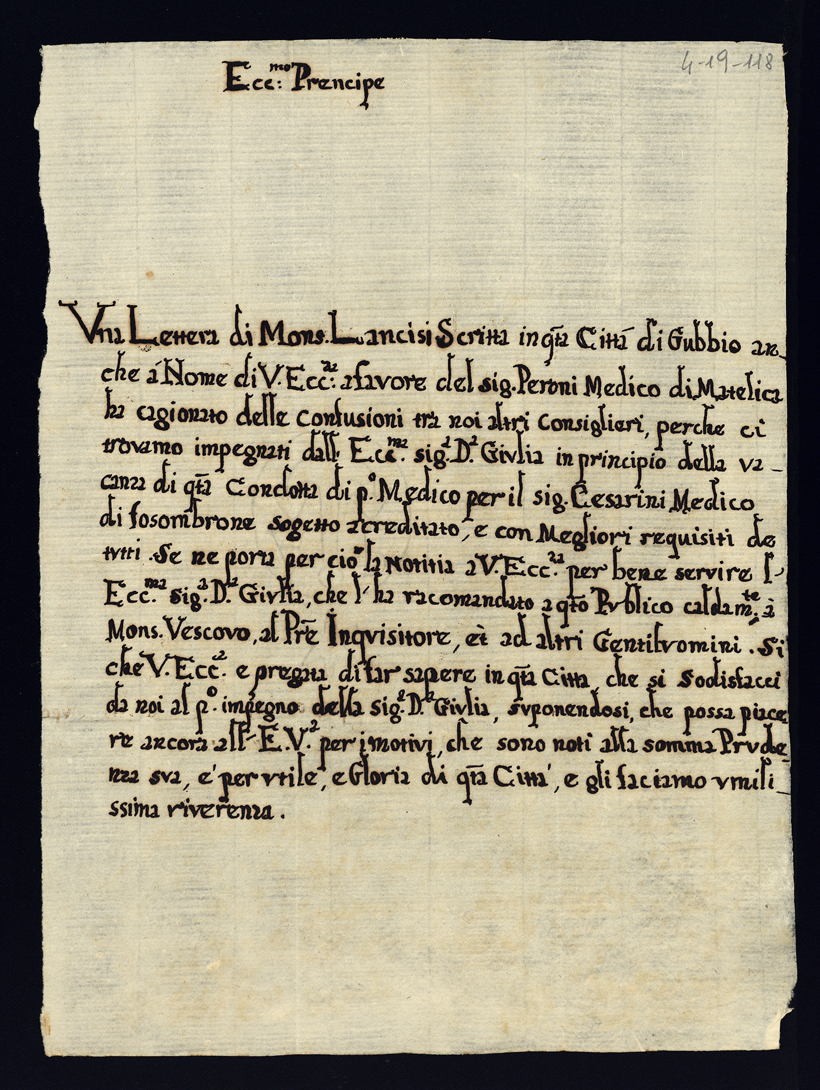 4-19-118
Ecc:mo Prencipe
Vna Lettera di Mons. Lancisi Scritta in q̃ta Cittá di Gubbio an_
che á Nome di V. Ecc:za a favore del sig. Peroni Medico di Matelica
ha cagionato delle Confusioni tra noi altri Consiglieri, perche ci
trovamo impegnati dall: Ecc:ma sig.a D.a Givlia in principio della va_
canza di q̃ta Condotta di p.o Medico per il sig. Cesarini Medico
di fosombrone sogetto acreditato, e con Megliori requisiti de
tvtti . Se ne porta per ciò la Notitia a V. Ecc.za per bene servire l'
Ecc.ma sig.a D.a Givlia, che l'ha racomandato a q̃to Pvblico caldam.te à
Mons. Vescovo, al Pr̃e Inqvisitore, et ad altri Gentilvomini . Si
che V. Ecc.a e pregata di far sapere in q̃ta Citta, che si sodisfacci
da noi al p.o impegno della Sig.a D.a Givlia, svponendosi, che possa piace
re ancora all' E. V.a per i motivi, che sono noti alla somma Prvde
nza sva, e' per vtile, e Gloria di q̃ta Citta', e gli faciamo vmili_
ssima riverenza .